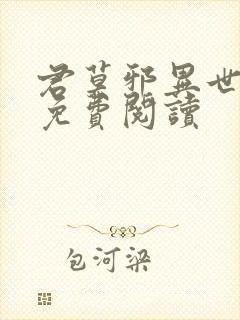 君莫邪異世
免費閱讀
包河梁